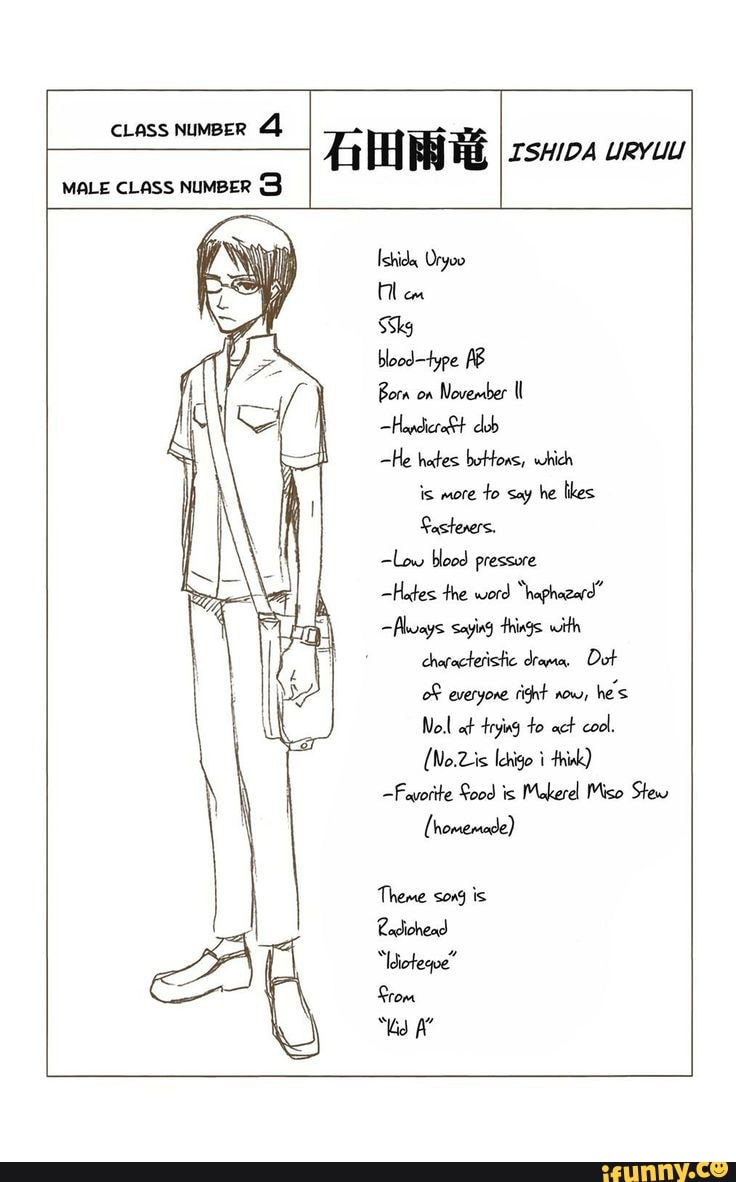 CLASS NUMBER 4
MALE CLASS NUMBER 3
石田雨竜
ISHIDA URYUU
Ishida Uryuu
171 cm
55kg
blood-type AB
Born on November 11
-Handicraft club
-He hates buttons, which
is more to say he likes
fasteners.
-Low blood pressure
-Hates the word "haphazard"
-Always saying things with
characteristic drama. Out
of everyone right now, he's
No.1 at trying to act cool.
(No.2 is Ichigo i think)
-Favorite food is Makerel Miso Stew
(homemade)
Theme song is
Radiohead
"Idioteque"
from
"Kid A"
ifunny.co